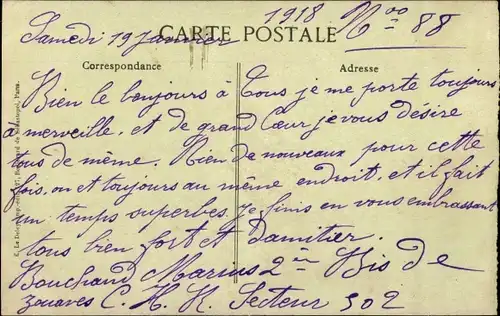 1918 Nᵒᵒ 88
CARTE POSTALE
Samedi 19 Janvier
Correspondance
Adresse
Bien le bonjours à Tous je me porte toujours
a merveille, et de grand Cœur je vous désire
tous de même. Rien de nouveaux pour cette
fois, on et toujours au même endroit, et il fait
un temps superbes. Je finis en vous embrassant
tous bien fort et Damitier.
Bouchand Marius 2ᵐᵉ Bis de
zouaves C. H. R. Secteur 502